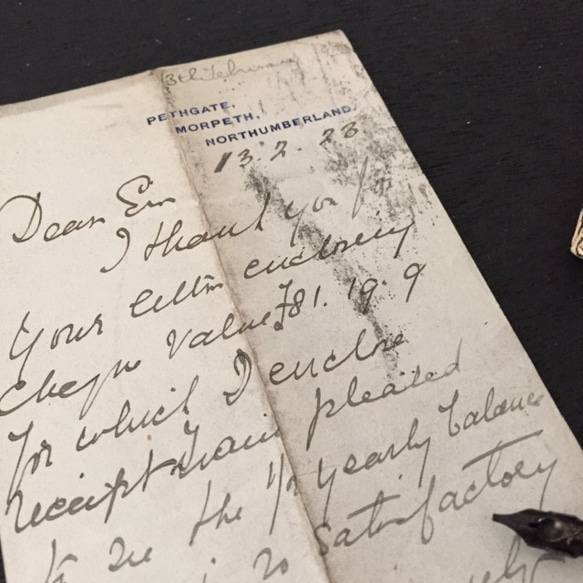 PETHGATE,
MORPETH,
NORTHUMBERLAND.
13.2.23
Dear Sir
I thank you for
your letter enclosing
cheque value £81.19.9
for which I enclose
receipt I am pleased
to see the ½ yearly balance
is so satisfactory